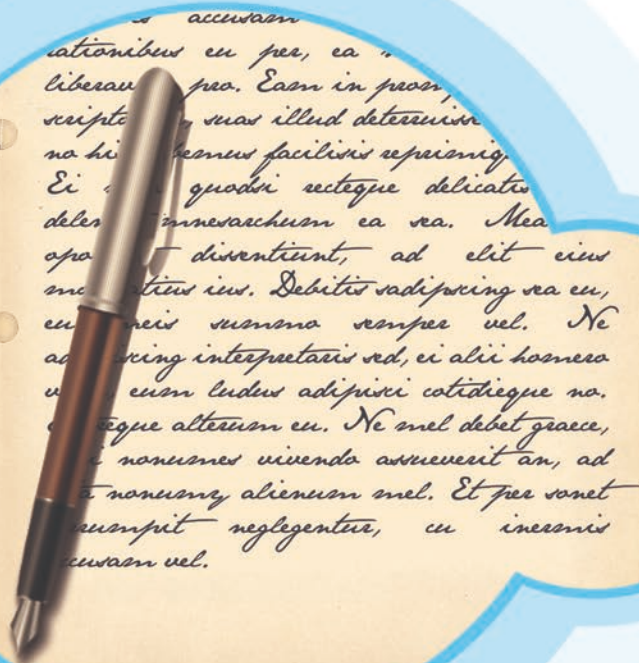 accusam
rationibus eu per, ea
liberav pro. Eam in prom
scripto, suas illud deterruisse
no hi bemus facilisis reprimiq
Ei quodsi recteque delicatis
delen mnesarchum ea sea. Mea
opo dissentiunt, ad elit eius
mo atius ius. Debitis sadipscing sea eu,
eu meis summo semper vel. Ne
ad iscing interpretaris sed, ei alii homero
v eum ludus adipisci cotidieque no.
eque alterum eu. Ne mel debet graece,
i nonumes vivendo assueverit an, ad
a nonumy alienum mel. Et per sonet
rumpit neglegentur, cu inermis
ccusam vel.